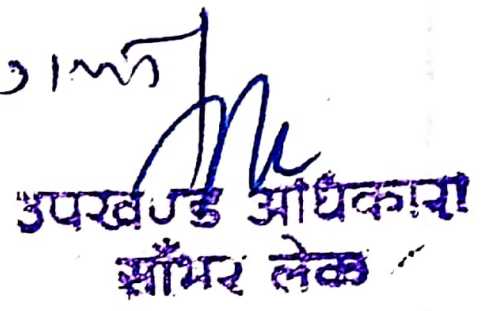 उपखण्ड अधिकारी
साँभर लेक